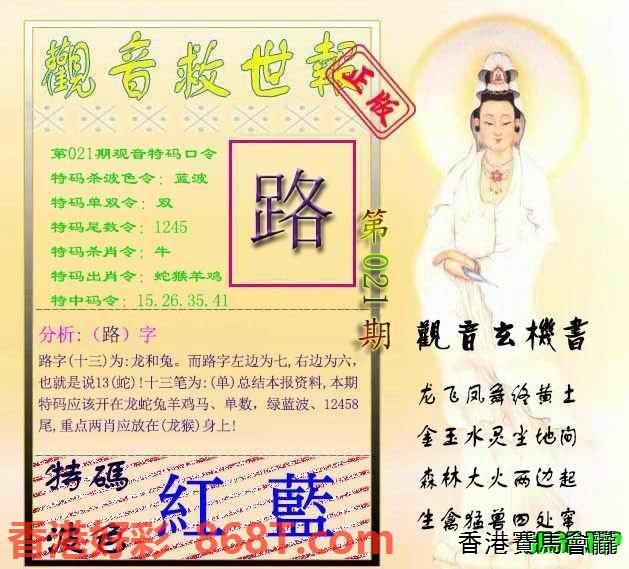 觀音救世報
正版
第021期观音特码口令
特码杀波色令：蓝波
特码单双令：双
特码尾数令：1245
特码杀肖令：牛
特码出肖令：蛇猴羊鸡
特中码令：15.26.35.41
路
第021期
分析:（路）字
路字(十三)为:龙和兔。而路字左边为七,右边为六,
也就是说13(蛇)!十三笔为:(单)总结本报资料,本期
特码应该开在龙蛇兔羊鸡马、单数，绿蓝波、12458
尾,重点两肖应放在(龙猴)身上!
特碼
波色
紅 藍
香港好彩 868T.com
觀音玄機書
龙飞凤舞终黄土
金玉水灵尘地间
森林大火两边起
生禽猛兽四处窜
香港賽馬會